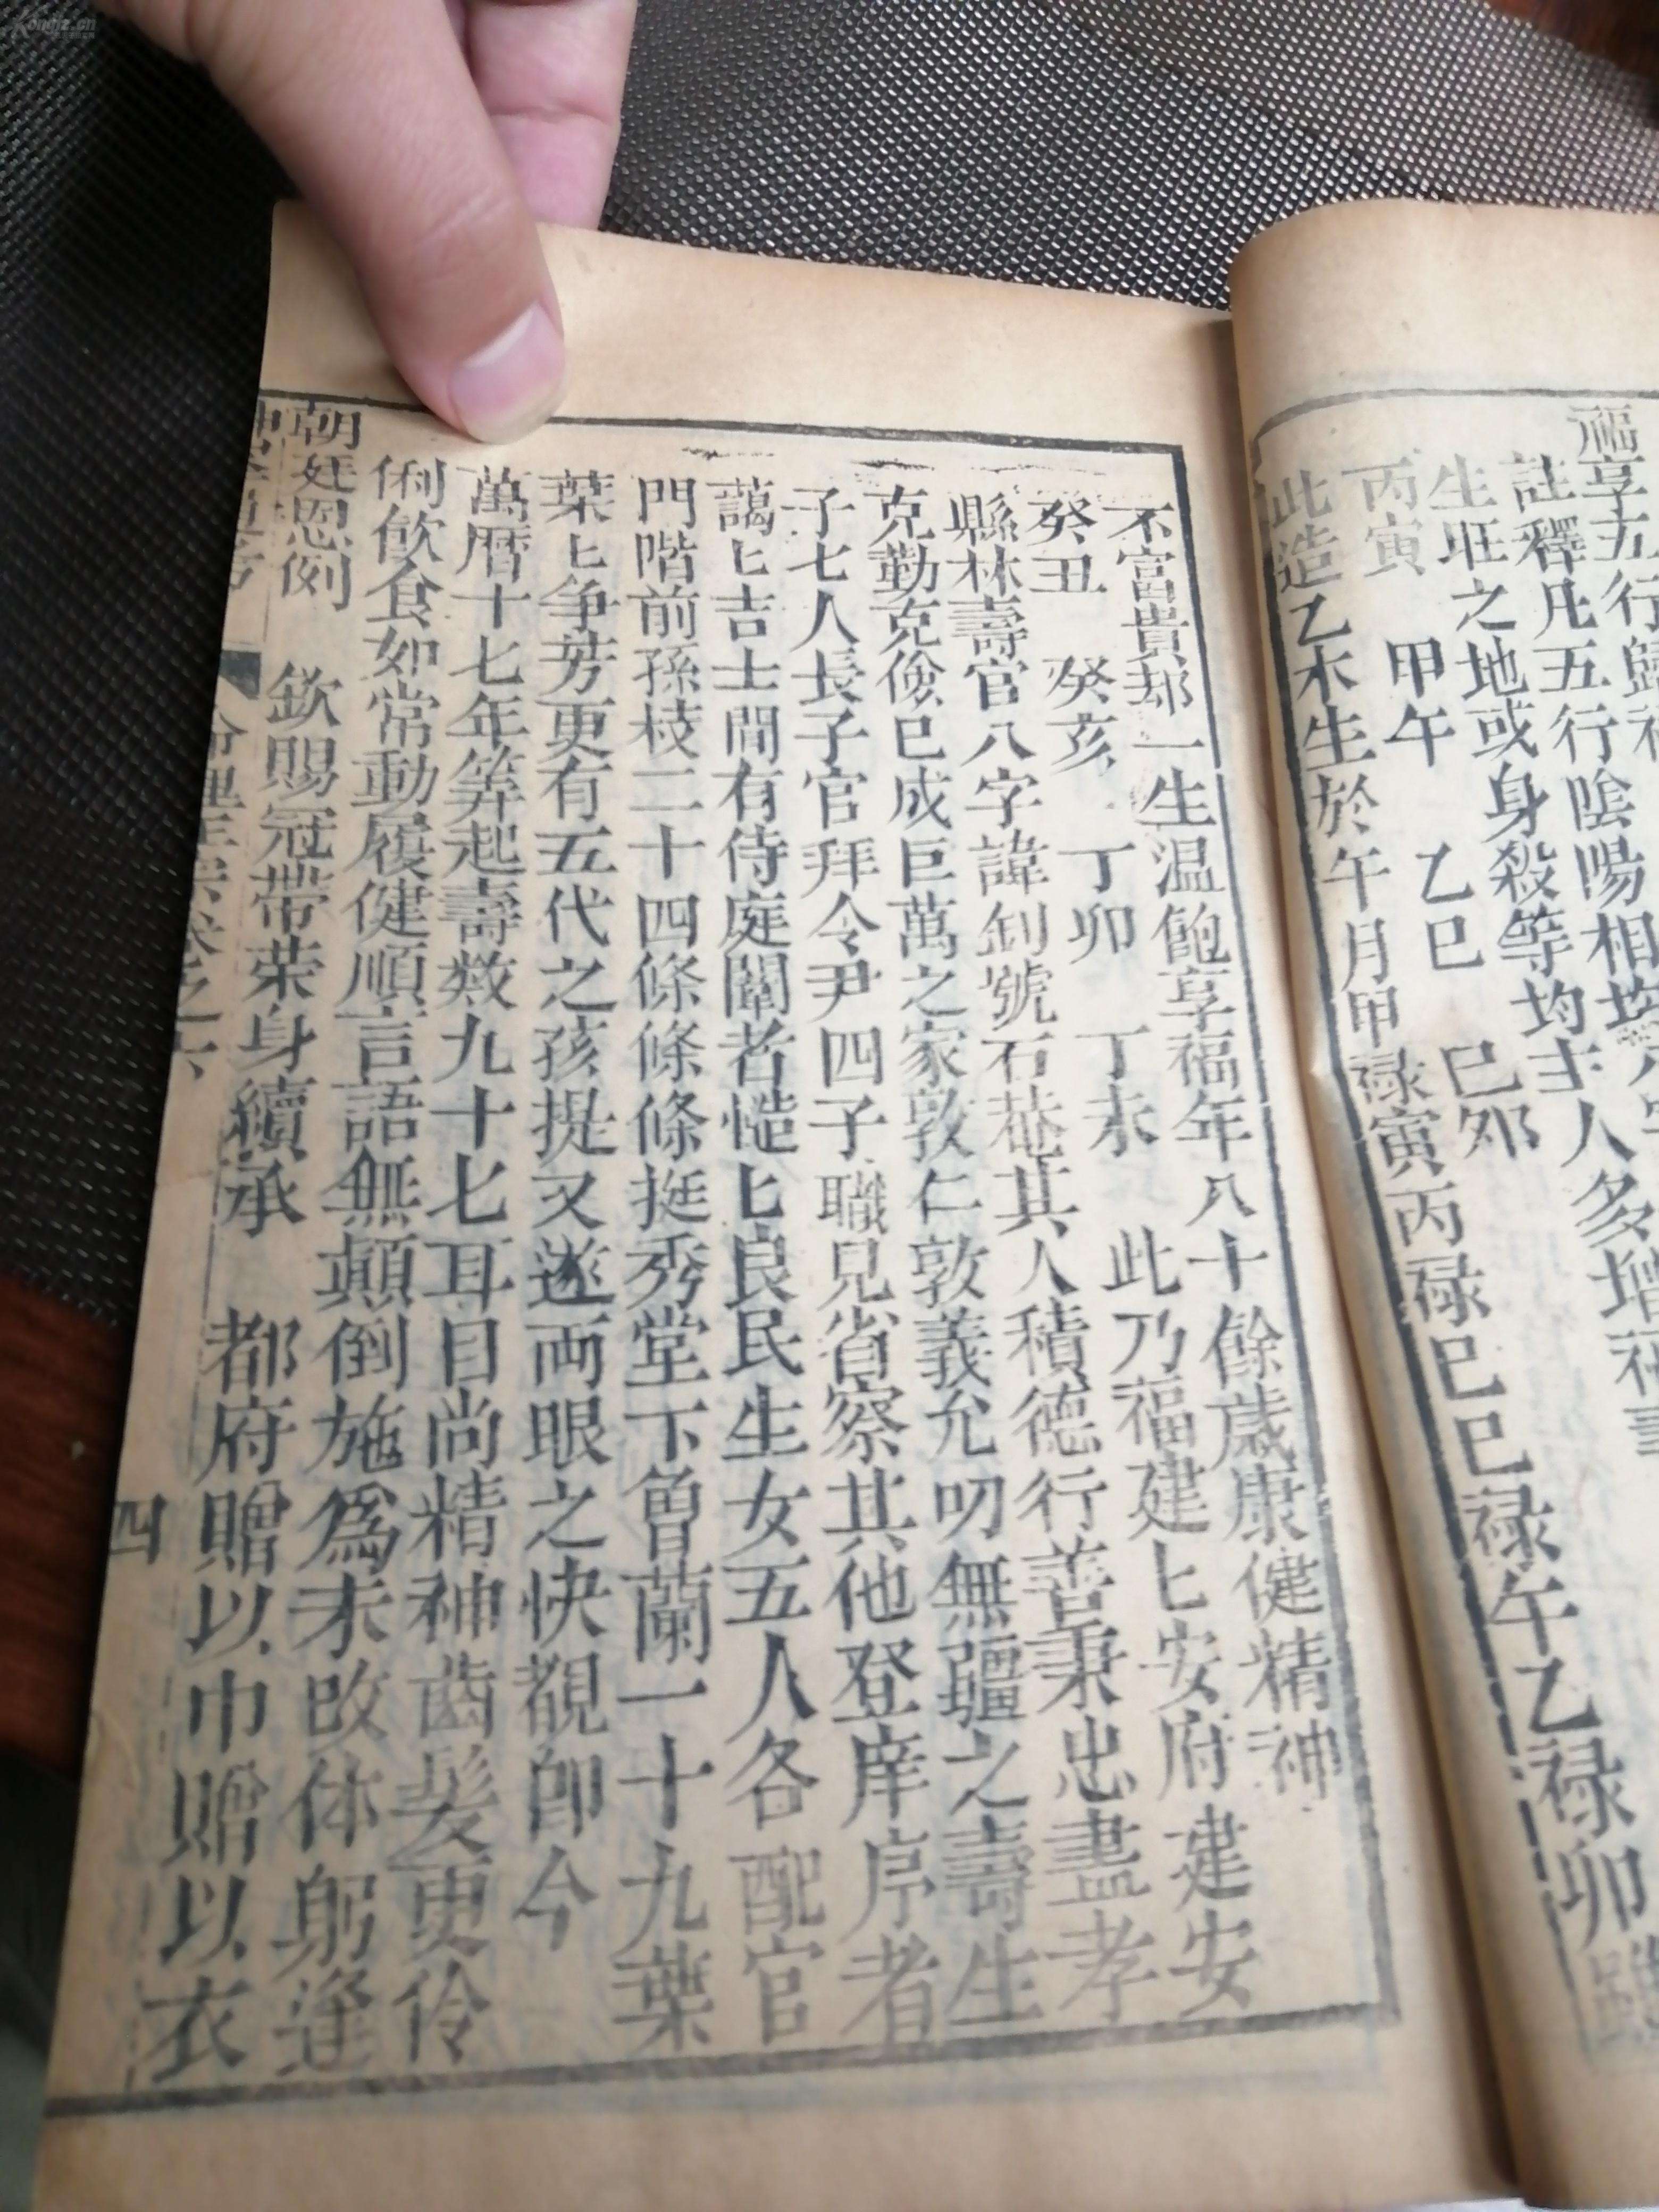 福享五行歸
註釋凡五行陰陽相均
生旺之地或身殺等均主人多增福壽
丙寅 甲午 乙巳 己卯
此造乙木生於午月甲祿寅丙祿巳巳祿午乙祿卯
不富貴却一生温飽享福年八十餘歲康健精神
癸丑 癸亥 丁卯 丁未 此乃福建匕安府建安
縣林壽官八字諱釗號石菴其人積德行善秉忠盡孝
克勤克儉已成巨萬之家敦仁敦義允叨無疆之壽生
子七人長子官拜令尹四子職見省察其他登庠序者
藹匕吉士間有侍庭闈者慥匕良民生女五人各配官
門階前孫枝二十四條條條挺秀堂下曾蘭一十九葉
葉匕爭芳更有五代之孩提又遂両眼之快覩即今
萬曆十七年筭起壽数九十七耳目尚精神齒髪更伶
俐飲食如常動履健順言語無顛倒施為未改体躬逢
朝廷恩例 欽賜冠帶荣身續承 都府贈以巾贈以衣
命理正宗卷之六 四